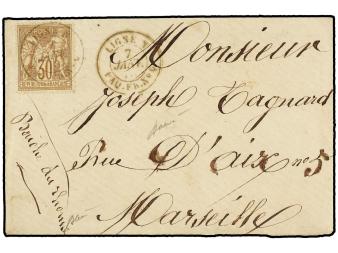 30
LIGNE
7
PAQ. FR. Nº
Monsieur
Joseph Tagnard
Rue D'aix nº 5
Marseille
Bouche du Rhone